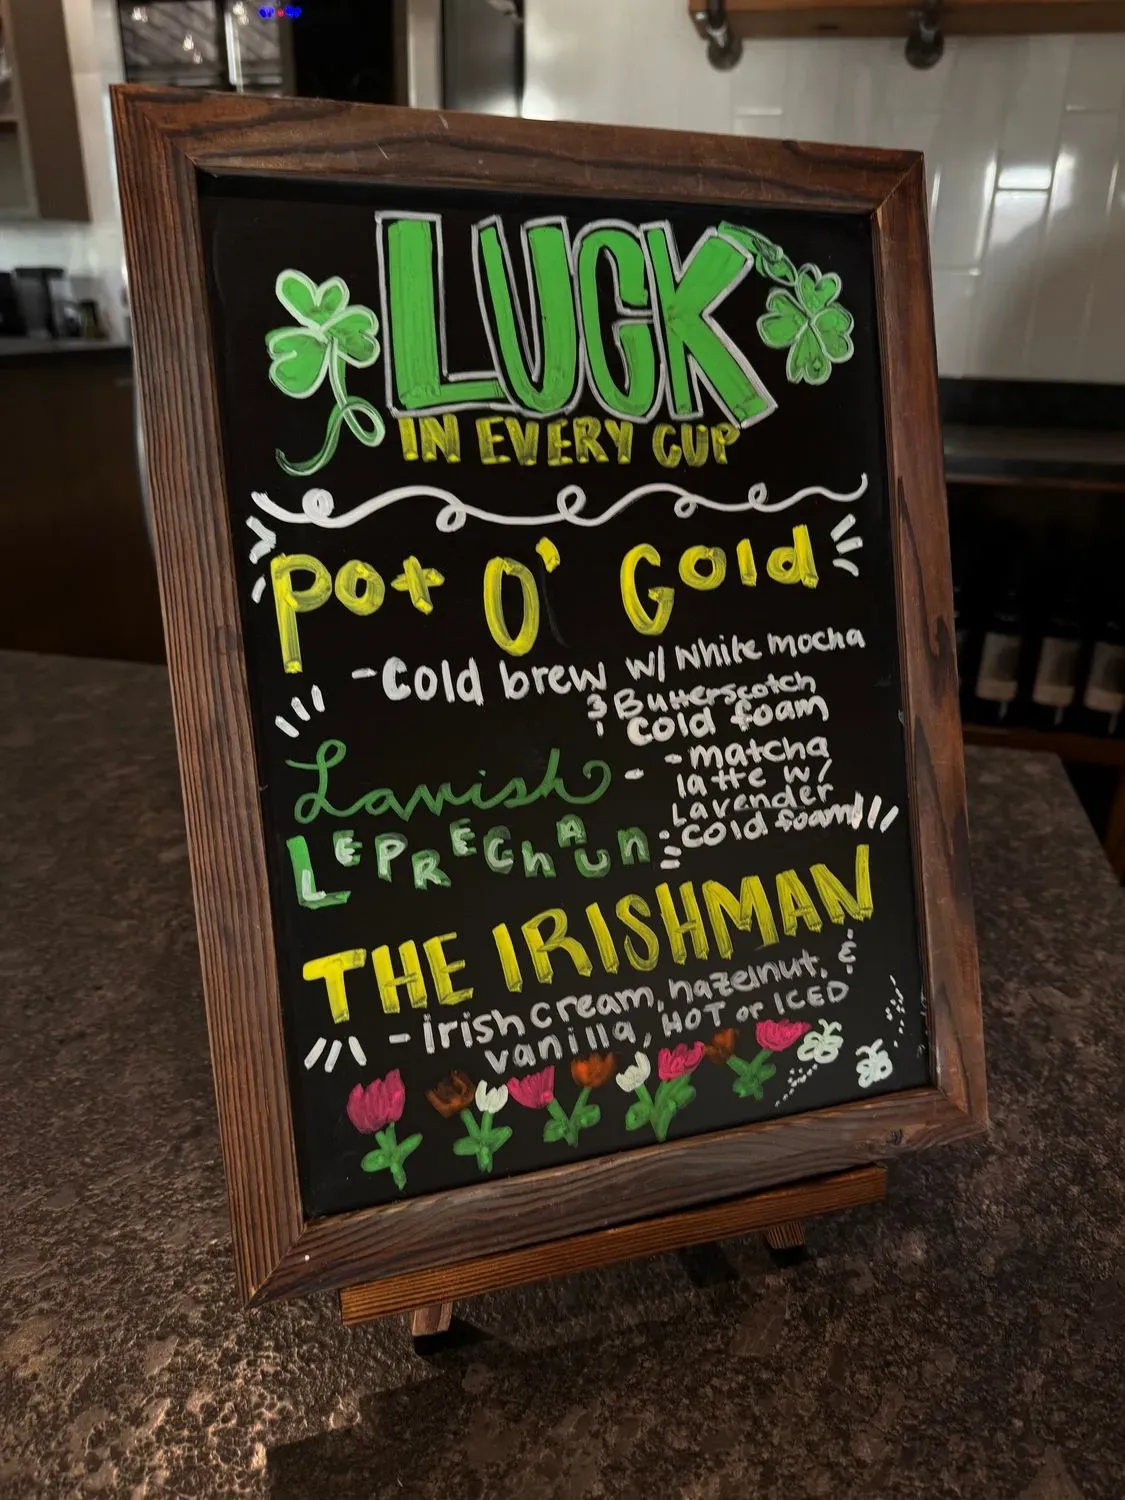 LUCK
IN EVERY CUP
Pot O' Gold
- Cold brew w/ White mocha
& Butterscotch
cold foam
Lavish - - matcha
latte w/
Lavender
cold foam
LEPREChAUn
THE IRISHMAN
- Irish cream, hazelnut, &
vanilla, HOT or ICED